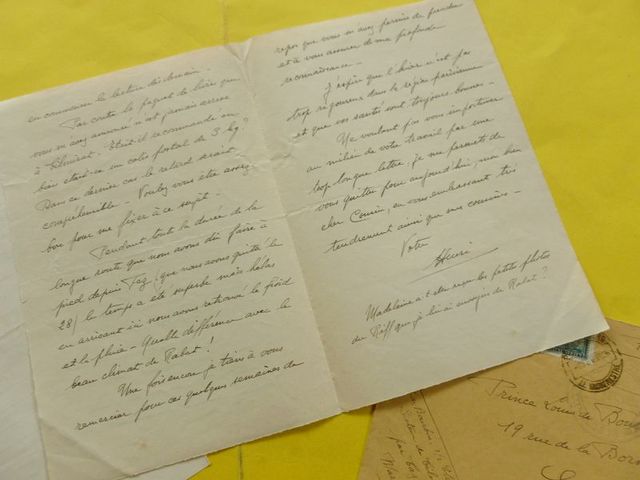 en commencer la lecture dès demain -
Par contre le paquet de livre que
vous m'avez annoncé n'est jamais arrivé
à . Était il recommandé ou
bien était-ce un colis postal de 3 kg?
Dans ce dernier cas le retard serait
compréhensible - Voulez vous être assez
bon pour me fixer à ce sujet -
Pendant toute la durée de la
longue route que nous avons dû faire à
pied depuis Fez (que nous avons quitté le
28) le temps a été superbe mais hélas
en arrivant ici nous avons retrouvé le froid
et la pluie - Quelle différence avec le
beau climat de Rabat !
Une fois encore je tiens à vous
remercier pour ces quelques semaines de
repos que vous m'avez permis de prendre
et à vous assurer de ma profonde
reconnaissance -
J'espère que l'hiver n'est pas
trop rigoureux dans la région parisienne
et que vos santés sont toujours bonnes -
Ne voulant pas vous importuner
au milieu de votre travail par une
trop longue lettre, je me permets de
vous quitter pour aujourd'hui, mon bien
cher Cousin, en vous embrassant très
tendrement ainsi que mes cousines -
Votre
Henri
Madeleine a t'elle reçu les petites photos
du Riff que je lui ai envoyées de Rabat ?
Prince Louis de Bour
19 rue de la